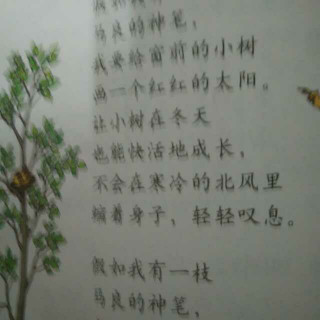 假如我有一枝
马良的神笔，
我要给窗前的小树
画一个红红的太阳。
让小树在冬天
也能快活地成长，
不会在寒冷的北风里
缩着身子，轻轻叹息。
假如我有一枝
马良的神笔，